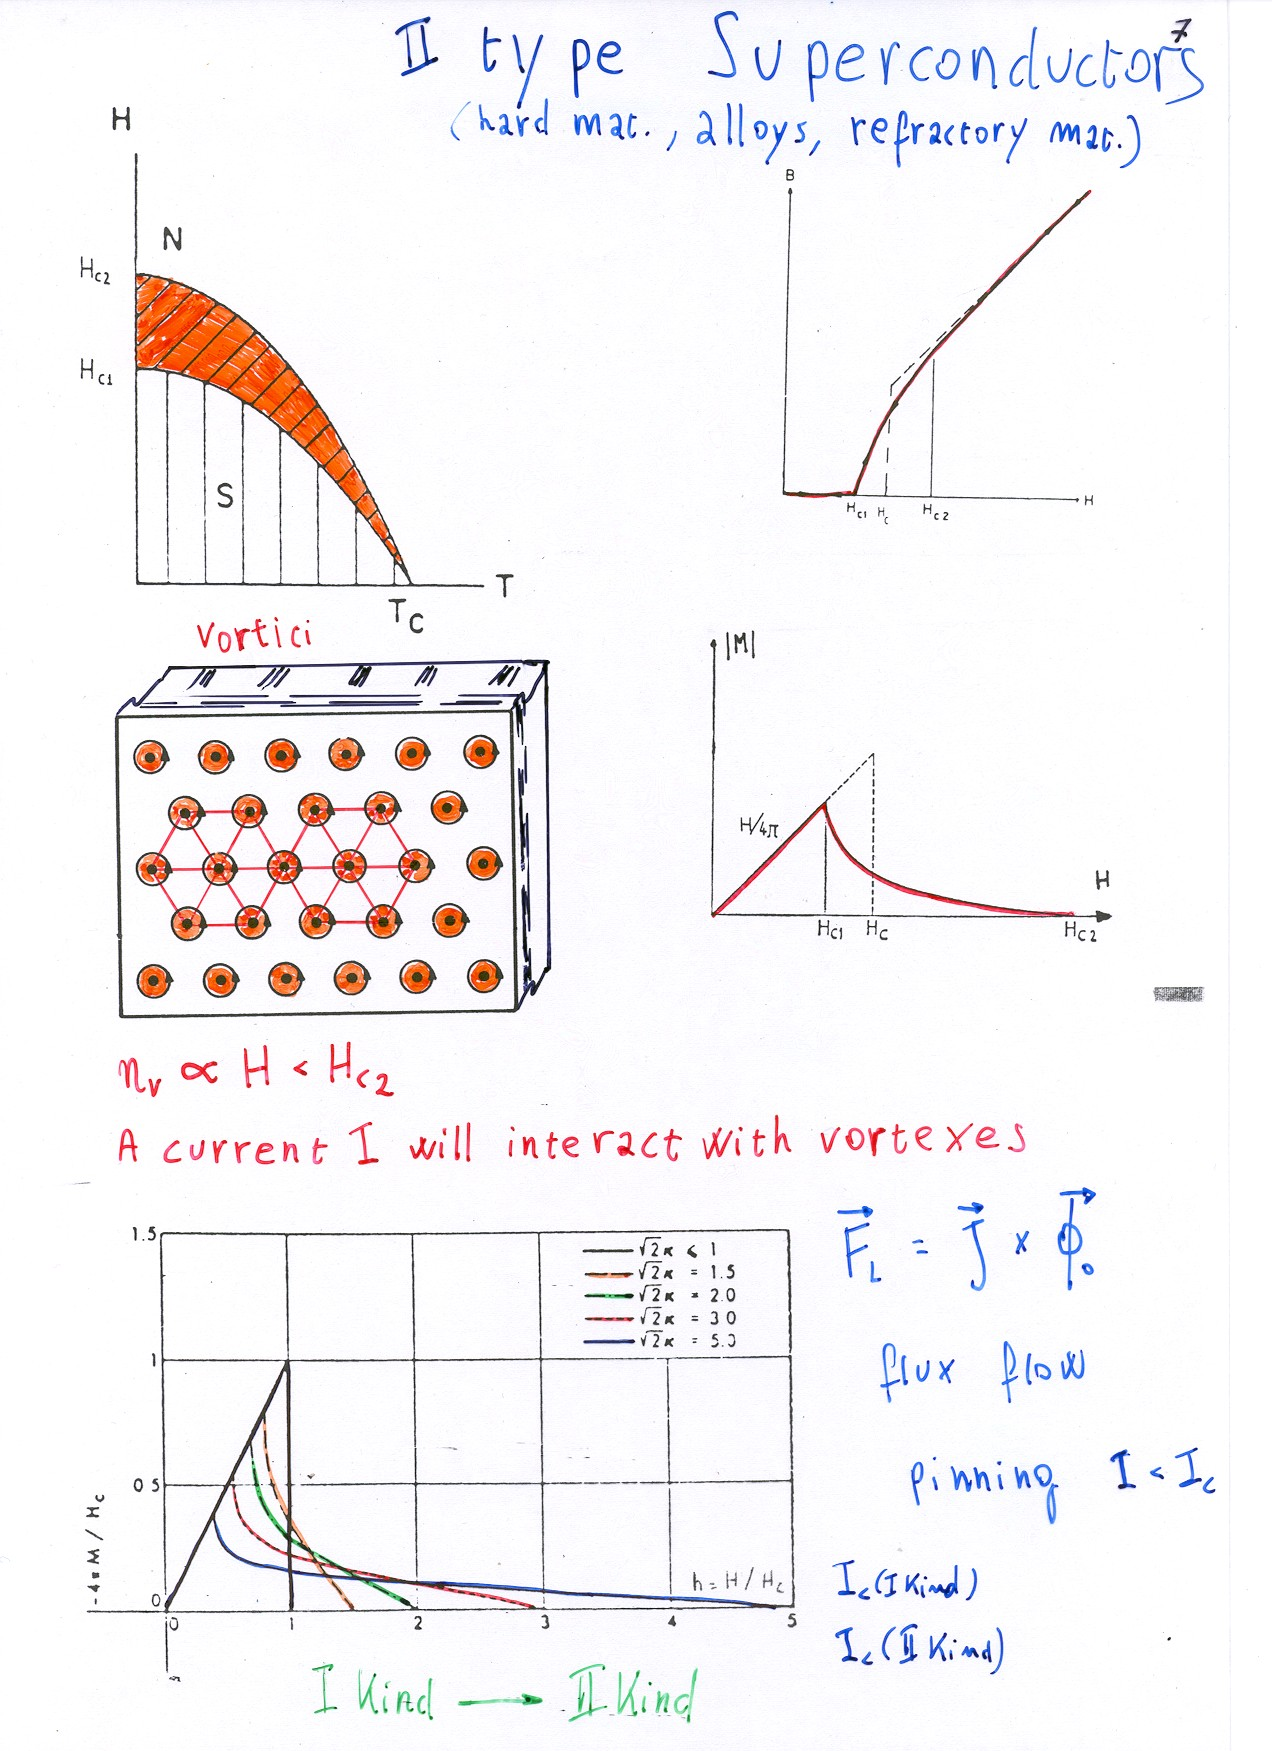 7
II type Superconductors
(hard mat., alloys, refractory mat.)
H
N
Hc2
Hc1
S
T
Tc
B
Hc1 Hc Hc2
H
vortici
|M|
H/4π
H
Hc1 Hc Hc2
nv ∝ H < Hc2
A current I will interact with vortexes
1.5
1
0 5
0
-4πM / Hc
√2κ < 1
√2κ = 1.5
√2κ = 2.0
√2κ = 3 0
√2κ = 5.0
h = H / Hc
0 1 2 3 4 5
F⃗L = J⃗ x ϕ⃗0
flux flow
pinning I < Ic
Ic (I Kind)
Ic (II Kind)
I Kind → II Kind